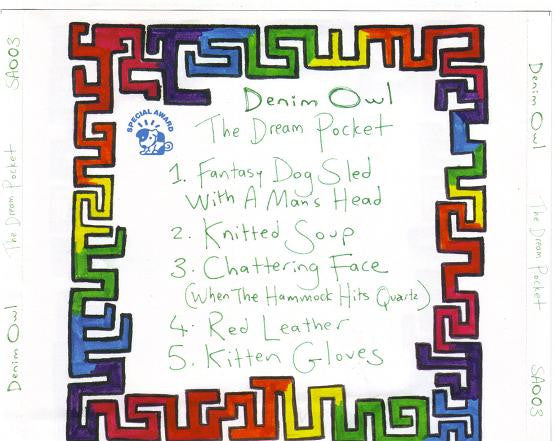 SPECIAL AWARD
Denim Owl
The Dream Pocket
1. Fantasy Dog Sled
With A Man's Head
2. Knitted Soup
3. Chattering Face
(When The Hammock Hits Quartz)
4. Red Leather
5. Kitten Gloves
Denim Owl The Dream Pocket SA003
Denim Owl The Dream Pocket SA003